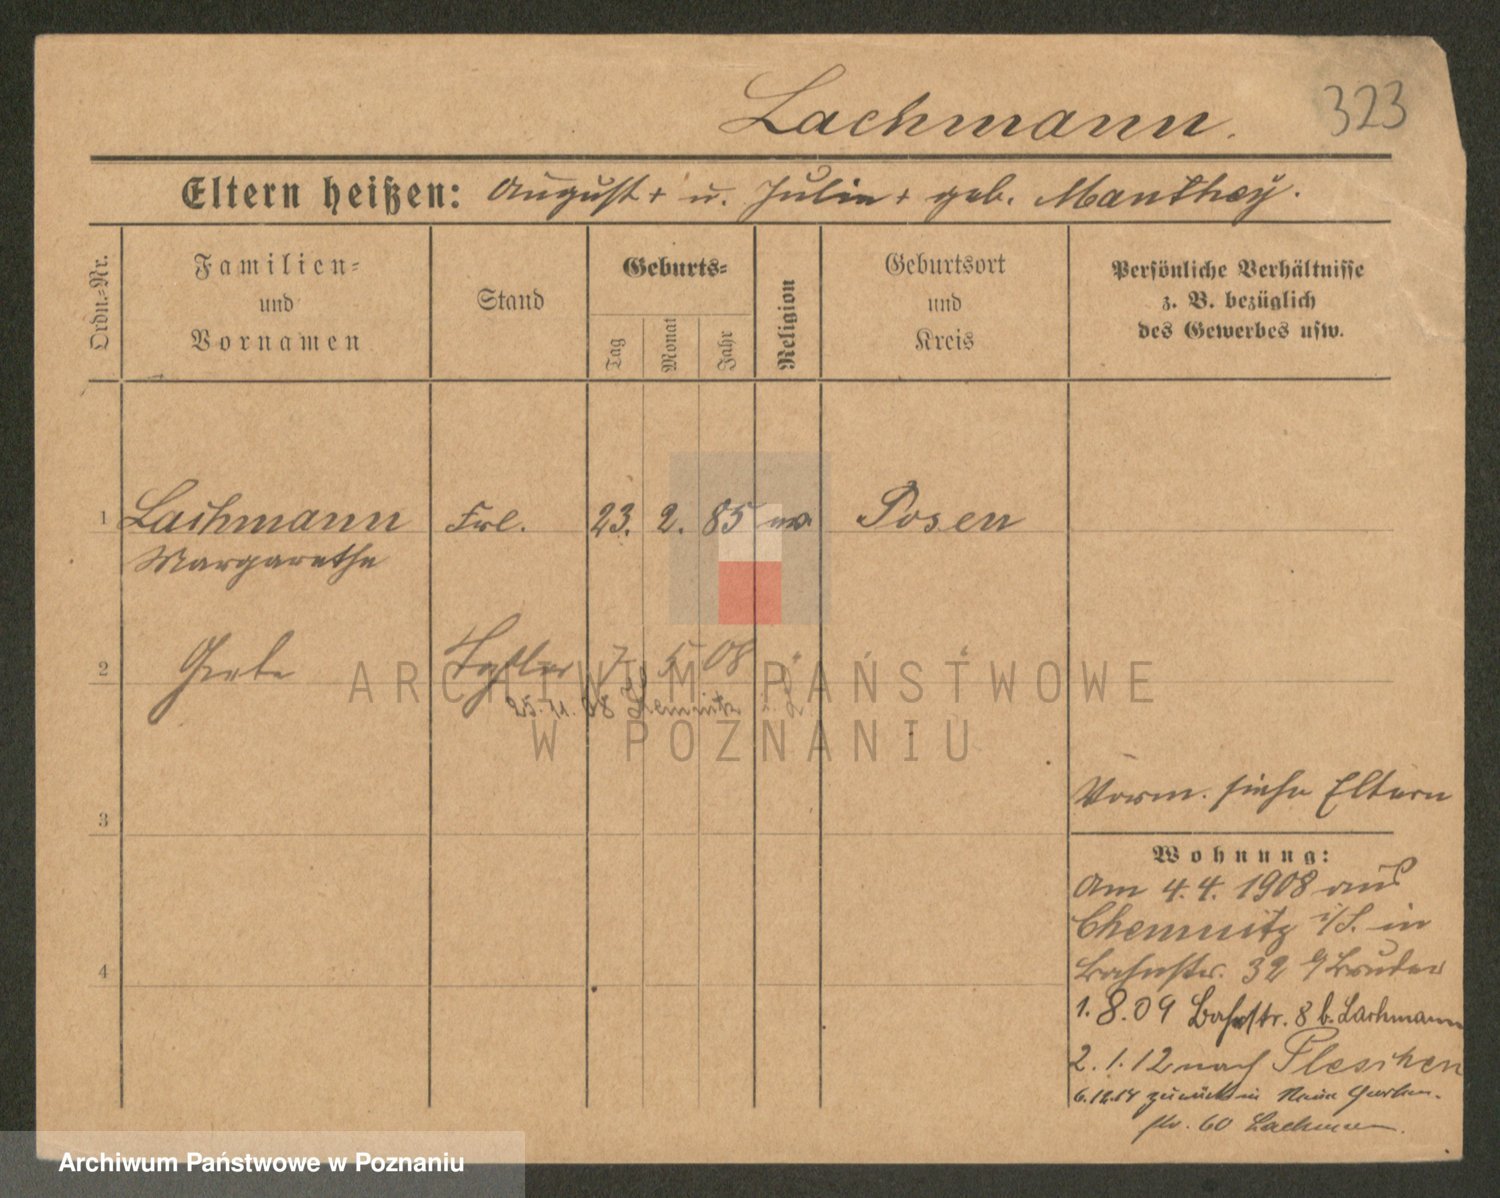 Lachmann.
323
Eltern heißen: August + u. Julie + geb. Manthey.
Ordn.-Nr.
Familien-
und
Vornamen
Stand
Geburts-
Tag
Monat
Jahr
Religion
Geburtsort
und
Kreis
Persönliche Verhältnisse
z. B. bezüglich
des Gewerbes usw.
1 Lachmann Frl. 23. 2. 85 ev. Posen
Margarethe
2 7. 5 08
25. 08 Chemnitz
ARCHIWUM PAŃSTWOWE
W POZNANIU
Vorm. siehe Eltern
3
Wohnung:
Am 4.4. 1908 aus
Chemnitz i/S. in
Bahnstr. 32 b/Bruder
4
1.8.09 Bahnstr. 8 b. Lachmann
2.1.12 nach Pleschen
6.12.14 zurück in Neue Garten-
str. 60 Lachmann.
Archiwum Państwowe w Poznaniu